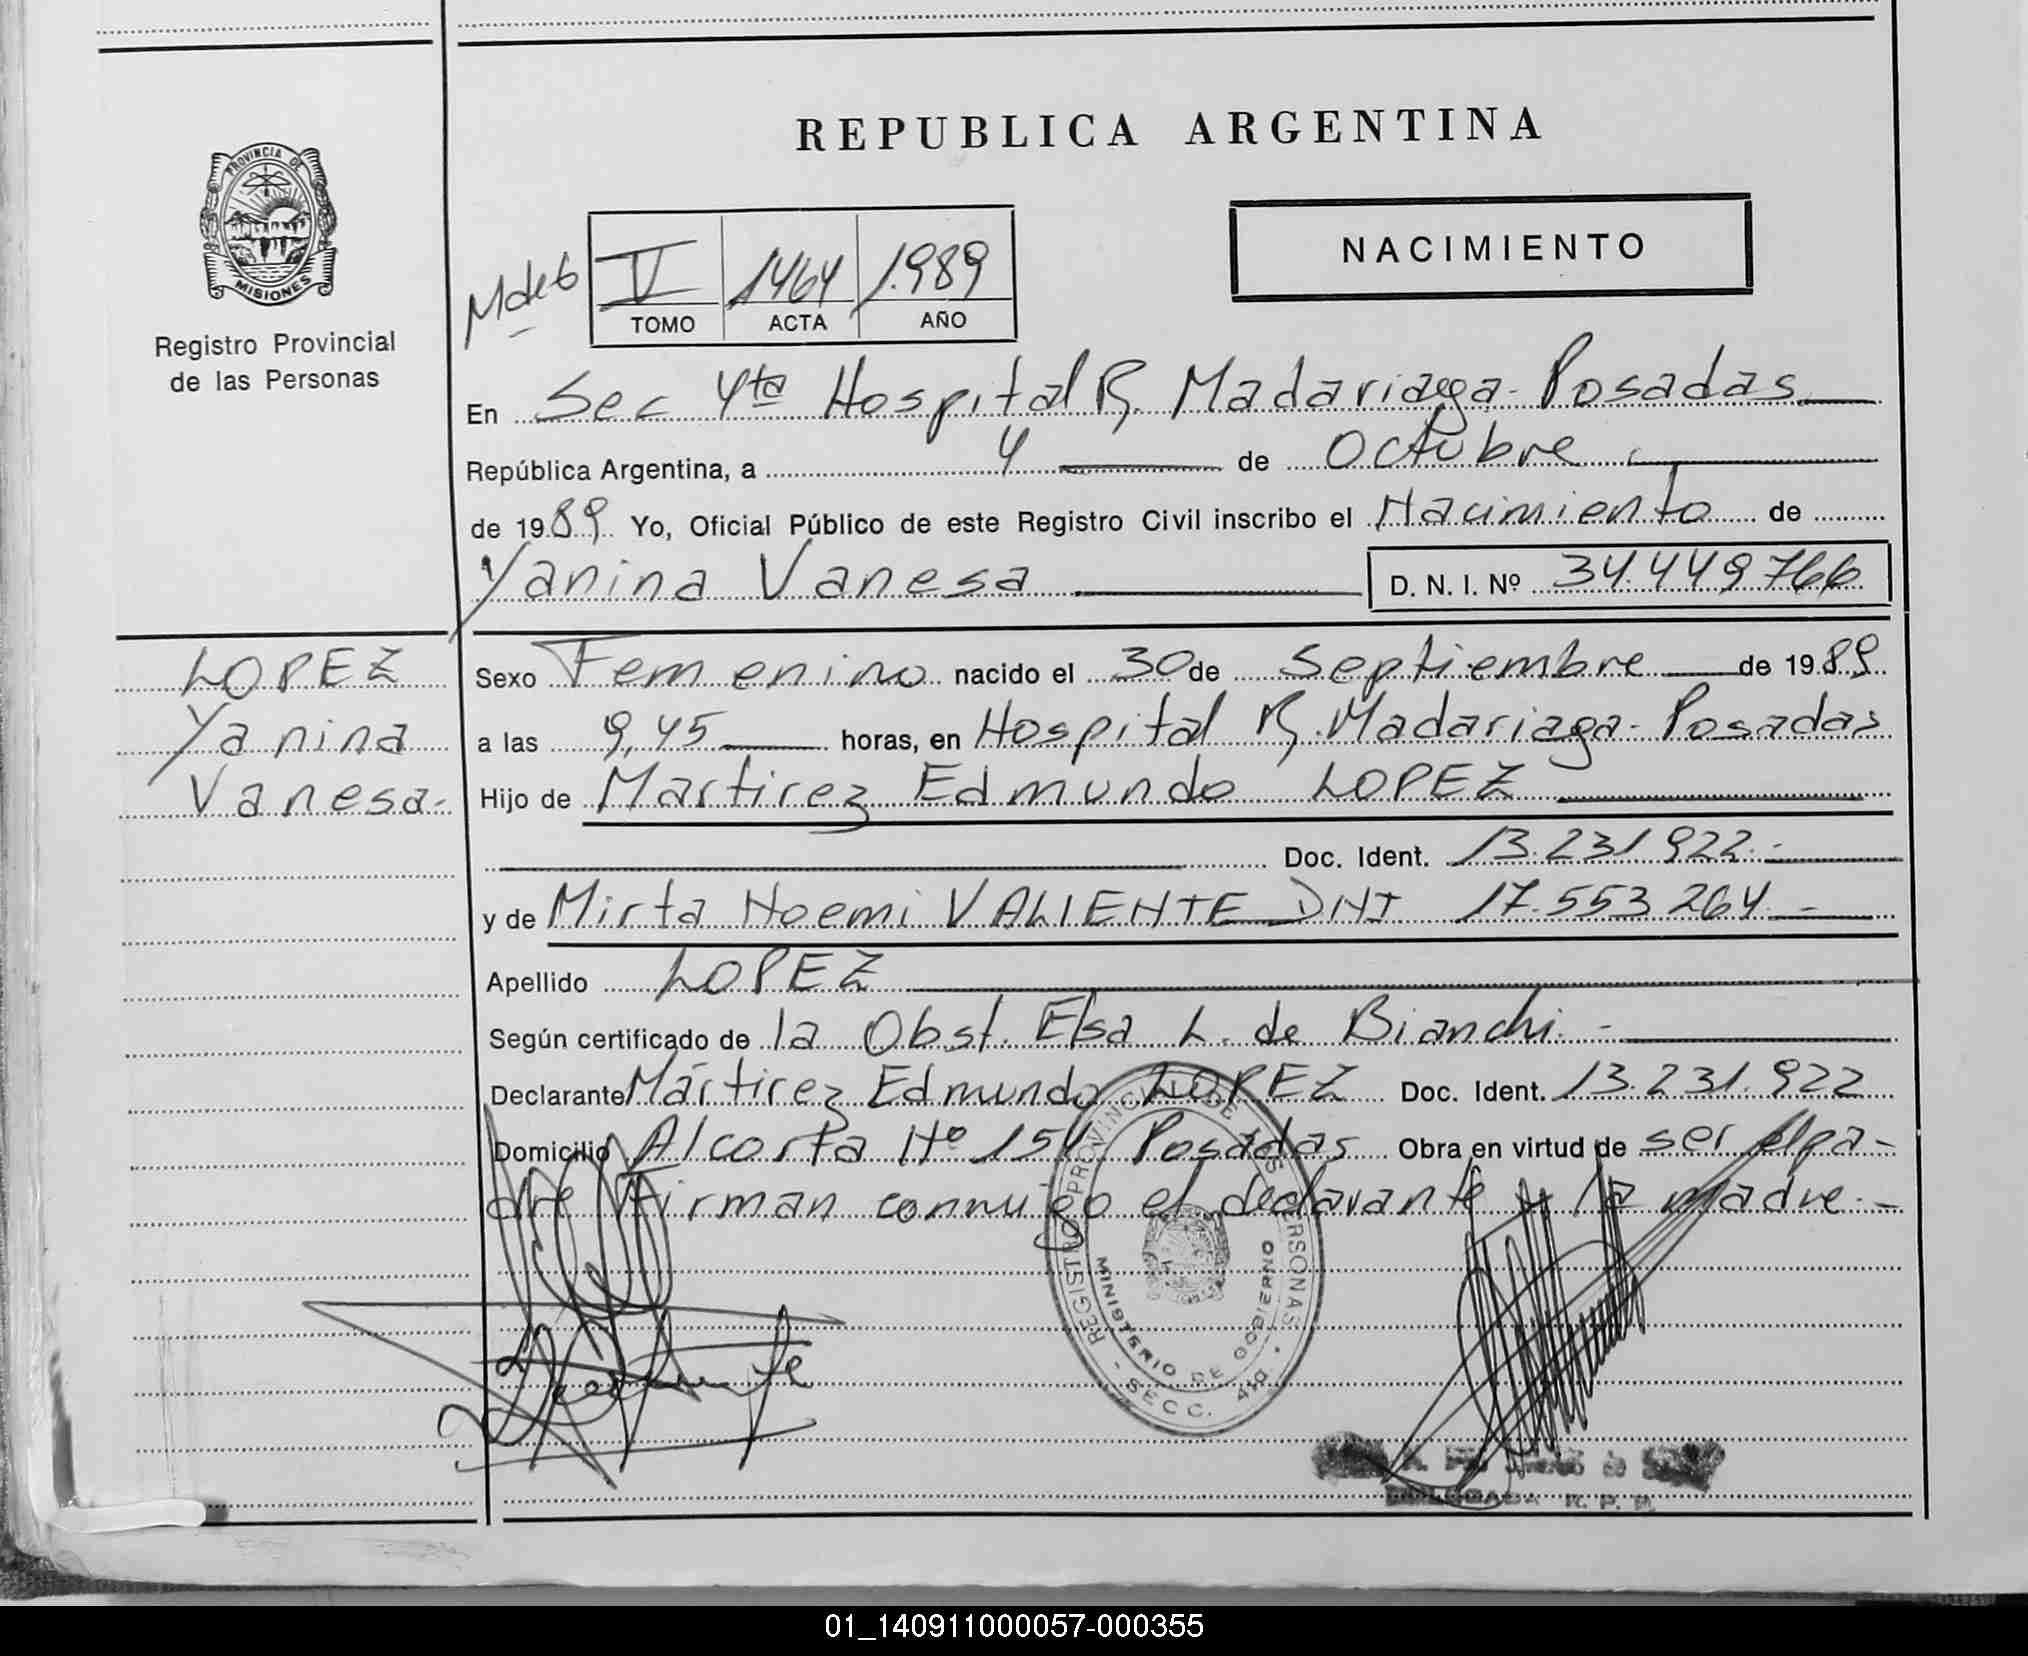 REPUBLICA ARGENTINA
PROVINCIA DE
MISIONES
Registro Provincial
de las Personas
NACIMIENTO
V 1464 1.989
TOMO ACTA AÑO
En Sec 4ta Hospital R. Madariaga - Posadas
República Argentina, a 4 de Octubre
de 1989 Yo, Oficial Público de este Registro Civil inscribo el Nacimiento de
Yanina Vanesa D. N. I. Nº 34.449766
LOPEZ
Yanina
Vanesa.-
Sexo Femenino nacido el 30 de Septiembre de 1989
a las 9,45 horas, en Hospital R. Madariaga - Posadas
Hijo de Martirez Edmundo LOPEZ
Doc. Ident. 13.231922.-
y de Mirta Noemi VALIENTE DNI 17.553264.-
Apellido LOPEZ
Según certificado de la Obst. Elsa L. de Bianchi.-
Declarante Mártirez Edmundo LOPEZ Doc. Ident. 13.231.922
Domicilio Alcorta Nº 154 Posadas Obra en virtud de ser el pa-
dre Firman conmigo el declarante y la madre.-
REGISTRO PROVINCIAL DE LAS PERSONAS
MINISTERIO DE GOBIERNO
SECC. 4ta.
R. P. P.
01_140911000057-000355